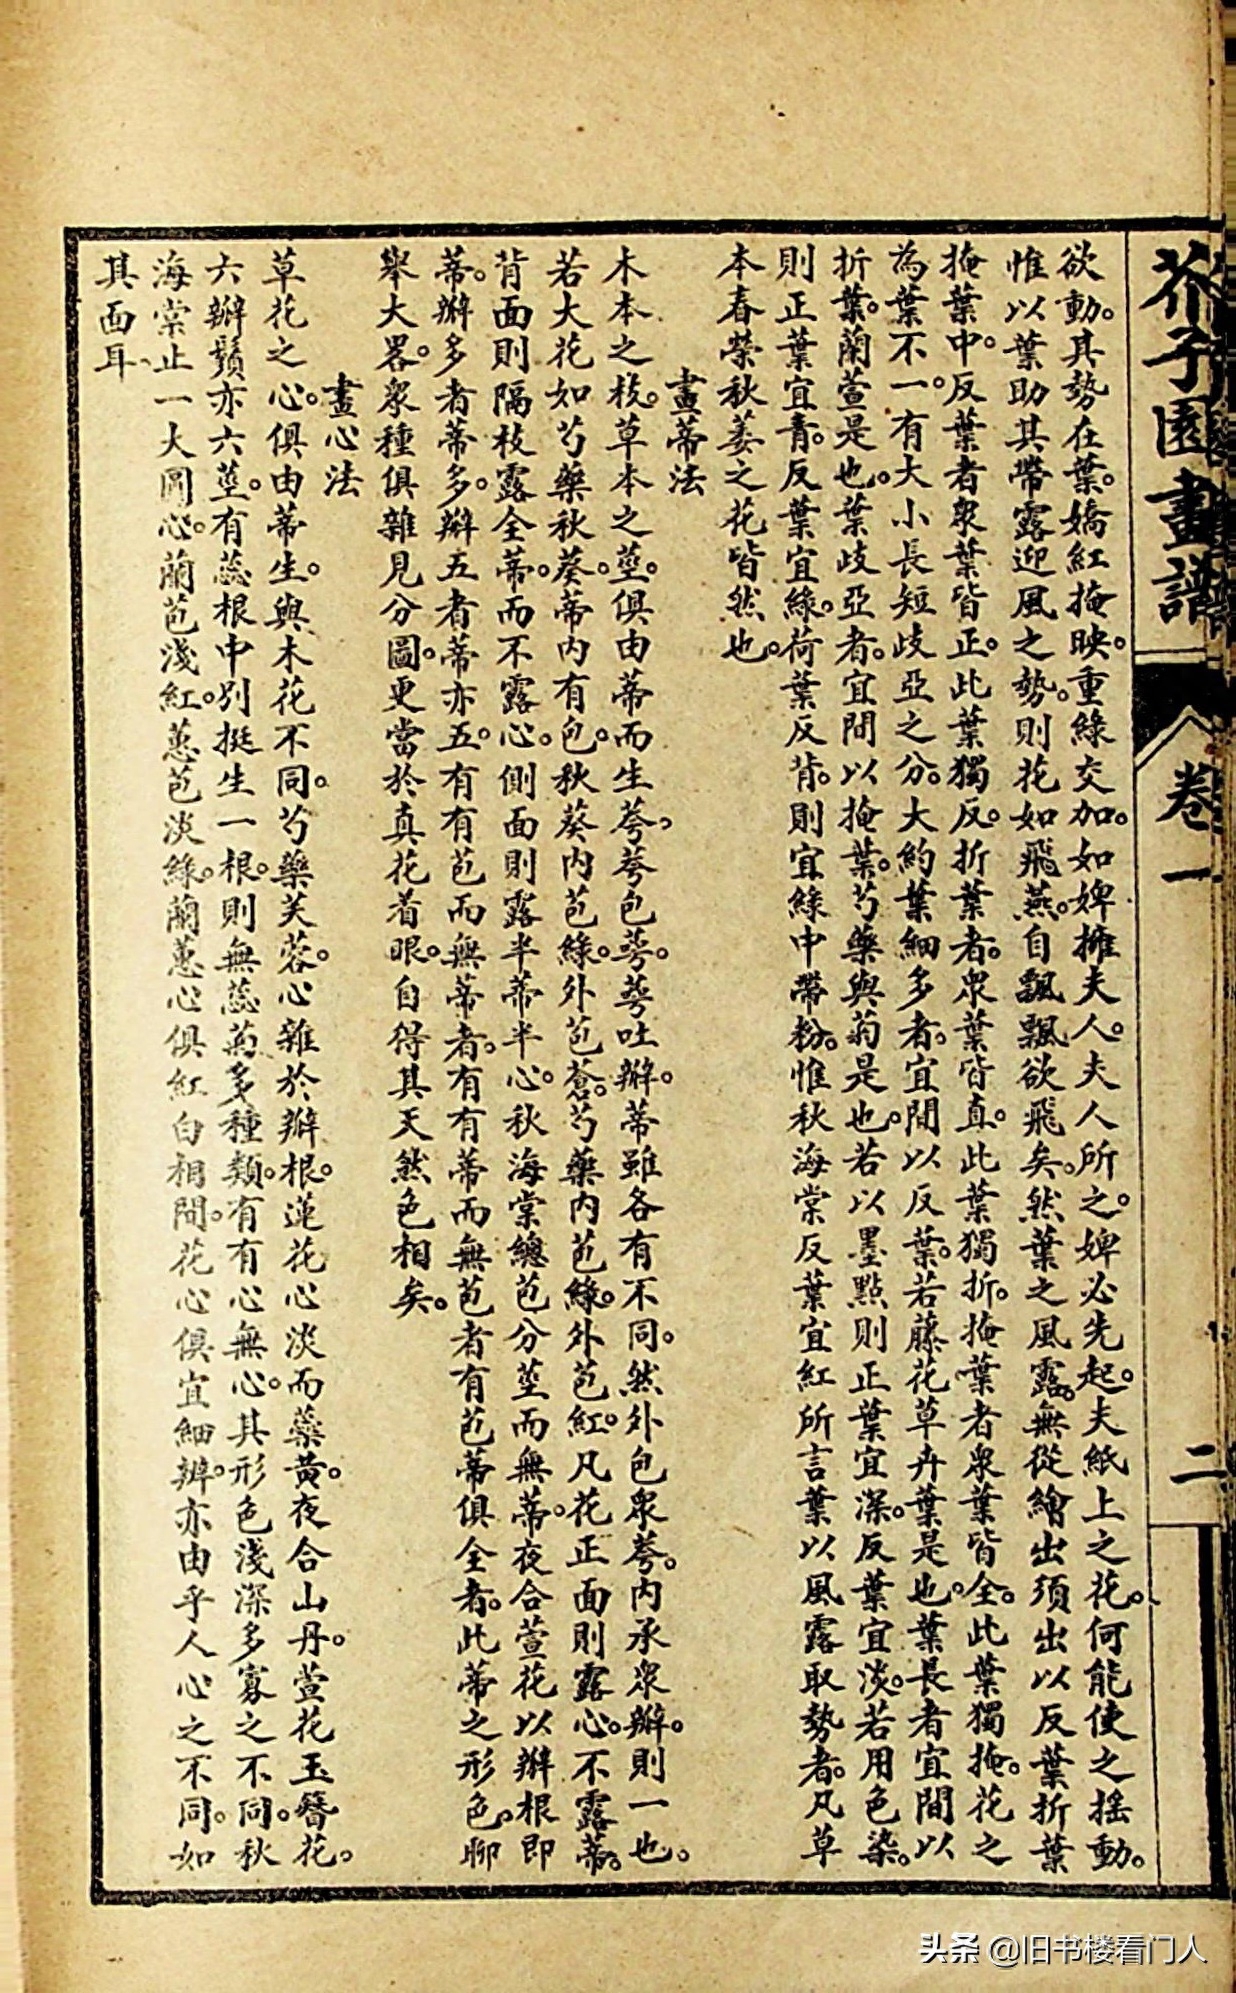 芥子園畫譜
卷一
二
欲動。其勢在葉。嬌紅掩映。重綠交加。如婢擁夫人。夫人所之。婢必先起。夫紙上之花。何能使之搖動。
惟以葉助其帶露迎風之勢。則花如飛燕。自飄飄欲飛矣。然葉之風露。無從繪出須出以反葉折葉
掩葉中。反葉者眾葉皆正。此葉獨反。折葉者。眾葉皆直。此葉獨折。掩葉者眾葉皆全。此葉獨掩。花之
為葉不一。有大小長短歧亞之分。大約葉細多者。宜間以反葉。若藤花草卉葉是也。葉長者宜間以
折葉。蘭萱是也。葉歧亞者。宜間以掩葉。芍藥與菊是也。若以墨點則正葉宜深。反葉宜淡。若用色染。
則正葉宜青。反葉宜綠。荷葉反背。則宜綠中帶粉。惟秋海棠反葉宜紅所言葉以風露取勢者。凡草
本春榮秋萎之花皆然也。
畫蒂法
木本之枝。草本之莖。俱由蒂而生蕚。蕚包蕚。蕚吐瓣。蒂雖各有不同。然外包眾蕚。內承眾瓣。則一也。
若大花如芍藥秋葵。蒂內有包。秋葵內苞綠。外苞蒼。芍藥內苞綠。外苞紅。凡花正面則露心。不露蒂。
背面則隔枝露全蒂。而不露心。側面則露半蒂半心。秋海棠總苞分莖而無蒂。夜合萱花以瓣根即
蒂。瓣多者蒂多。瓣五者蒂亦五。有有苞而無蒂者。有有蒂而無苞者有苞蒂俱全者。此蒂之形色。聊
舉大畧。眾種俱雜見分圖。更當於真花着眼。自得其天然色相矣。
畫心法
草花之心。俱由蒂生。與木花不同。芍藥芙蓉。心雜於瓣根。蓮花心淡而藥黃。夜合山丹。萱花玉簪花。
六瓣鬚亦六莖。有蕊根中別挺生一根。則無蕊菊多種類。有有心無心。其形色淺深多寡之不同。秋
海棠止一大圓心。蘭苞淺紅。蕙苞淡綠。蘭蕙心俱紅白相間。花心俱宜細辨。亦由乎人心之不同。如
其面耳
头条 @旧书楼看门人